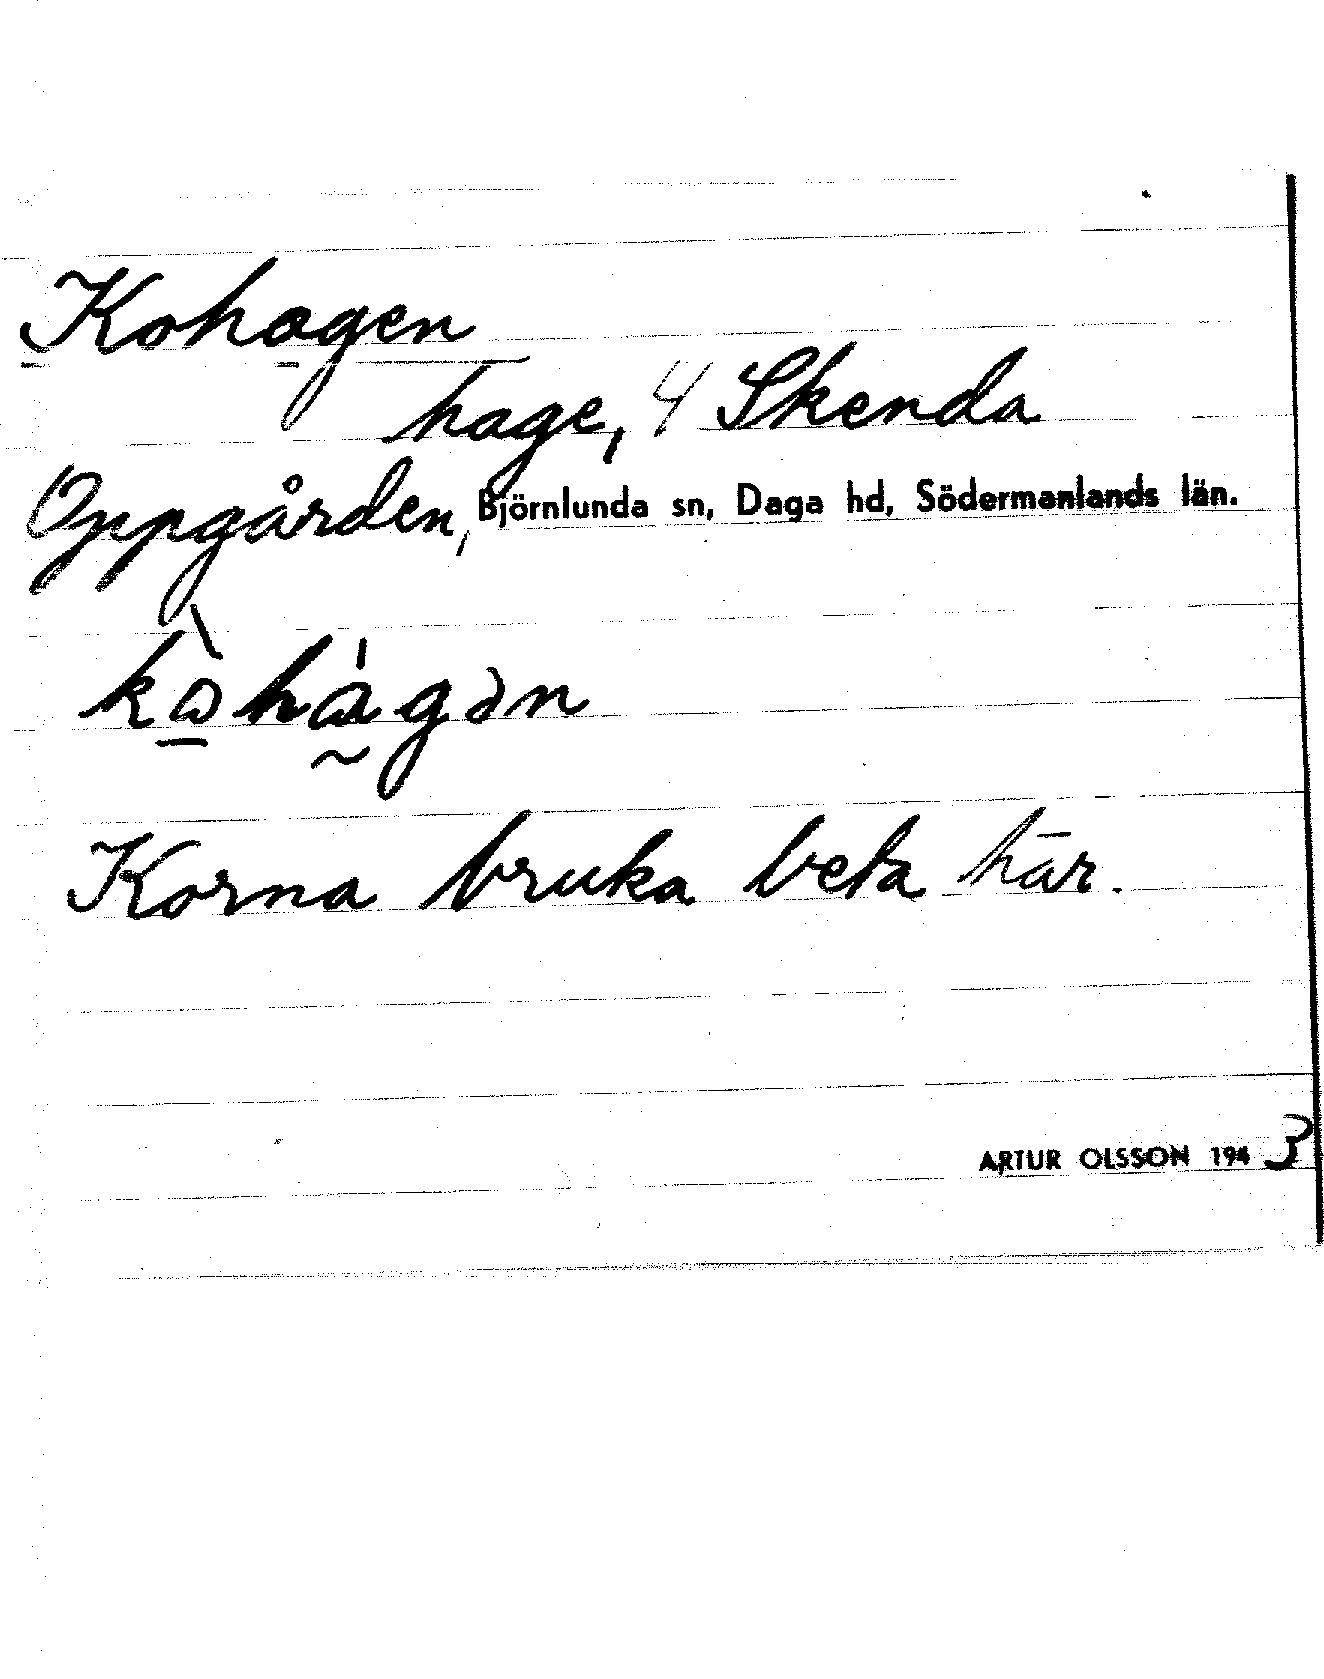 Kohagen
hage, 4 Skenda
Oppgården, Björnlunda sn, Daga hd, Södermanlands län.
Korna bruka beta här.
ARTUR OLSSON 1943